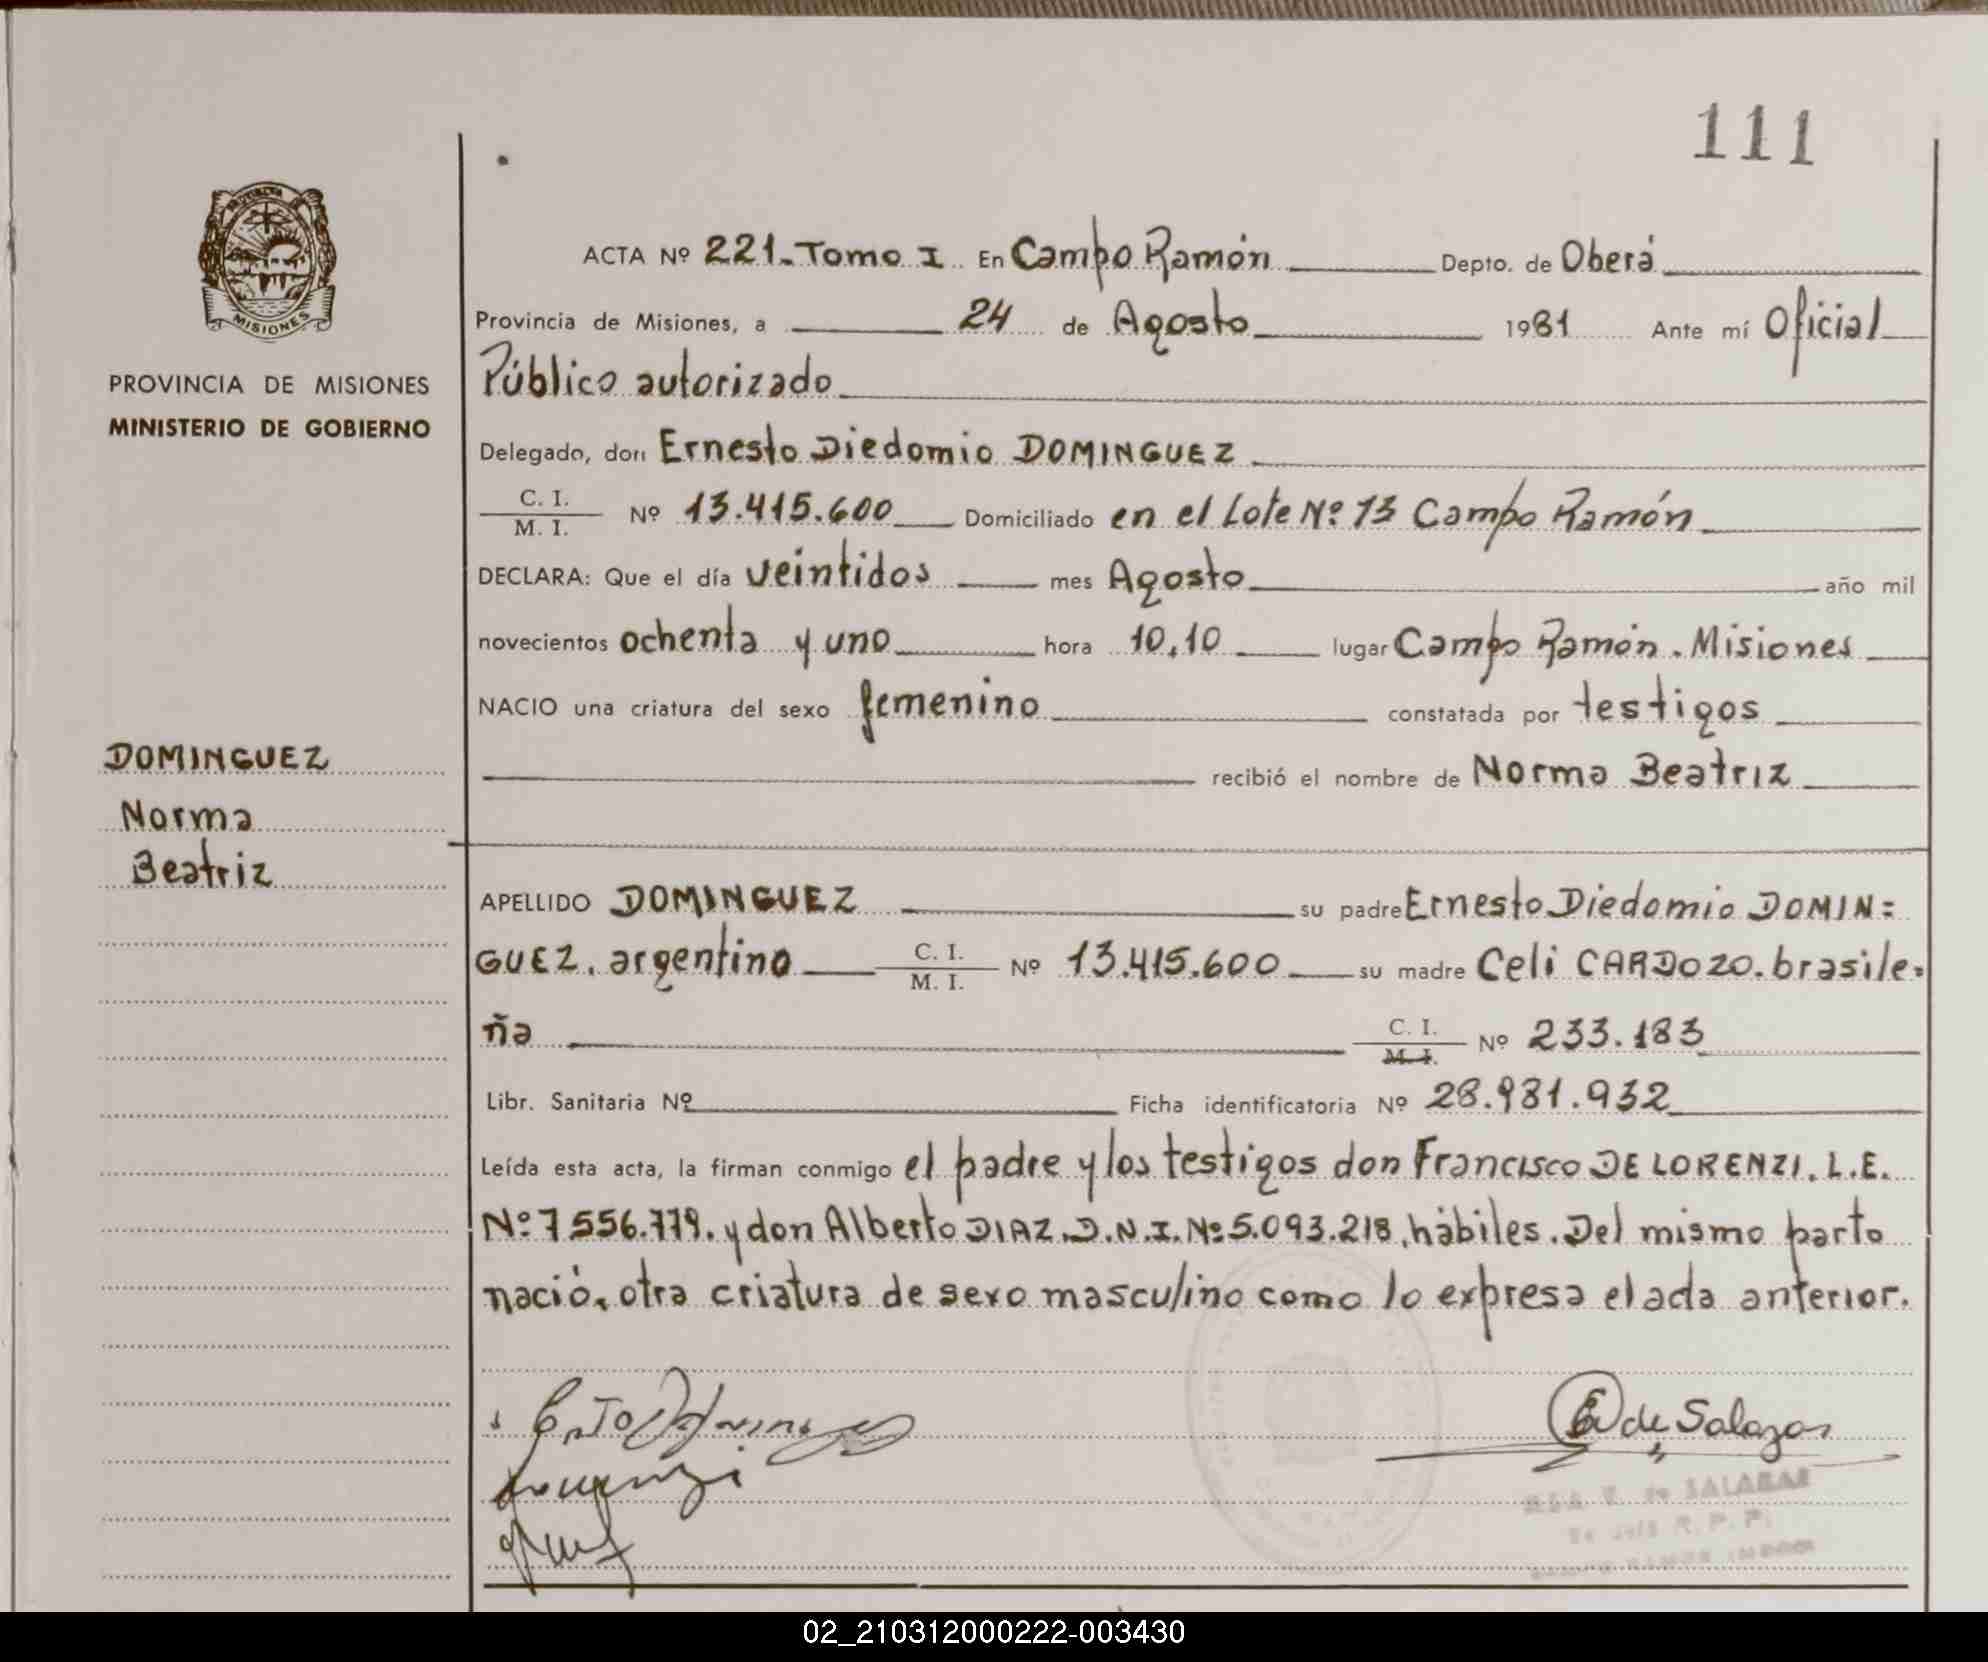 111
MISIONES
PROVINCIA DE MISIONES
MINISTERIO DE GOBIERNO
ACTA Nº 221.. Tomo I En Campo Ramón Depto. de Oberá
Provincia de Misiones, a 24 de Agosto 1981 Ante mí Oficial
Público autorizado
Delegado, don Ernesto Diedomio DOMINGUEZ
C. I.
M. I. Nº 13.415.600 Domiciliado en el Lote Nº 13 Campo Ramón
DECLARA: Que el día veintidos mes Agosto año mil
novecientos ochenta y uno hora 10,10 lugar Campo Ramón. Misiones
NACIO una criatura del sexo femenino constatada por testigos
recibió el nombre de Norma Beatriz
DOMINGUEZ
Norma
Beatriz
APELLIDO DOMINGUEZ su padre Ernesto Diedomio DOMIN=
GUEZ. argentino C. I.
M. I. Nº 13.415.600 su madre Celi CARDOZO. brasile=
ña C. I.
M. I. Nº 233.183
Libr. Sanitaria Nº Ficha identificatoria Nº 28.981.932
Leída esta acta, la firman conmigo el padre y los testigos don Francisco DE LORENZI. L.E.
Nº 7.556.779. y don Alberto DIAZ. D.N.I. Nº 5.093.218, hábiles. Del mismo parto
nació, otra criatura de sexo masculino como lo expresa el acta anterior.
de Salazar
V. de SALAZAR
02_210312000222-003430